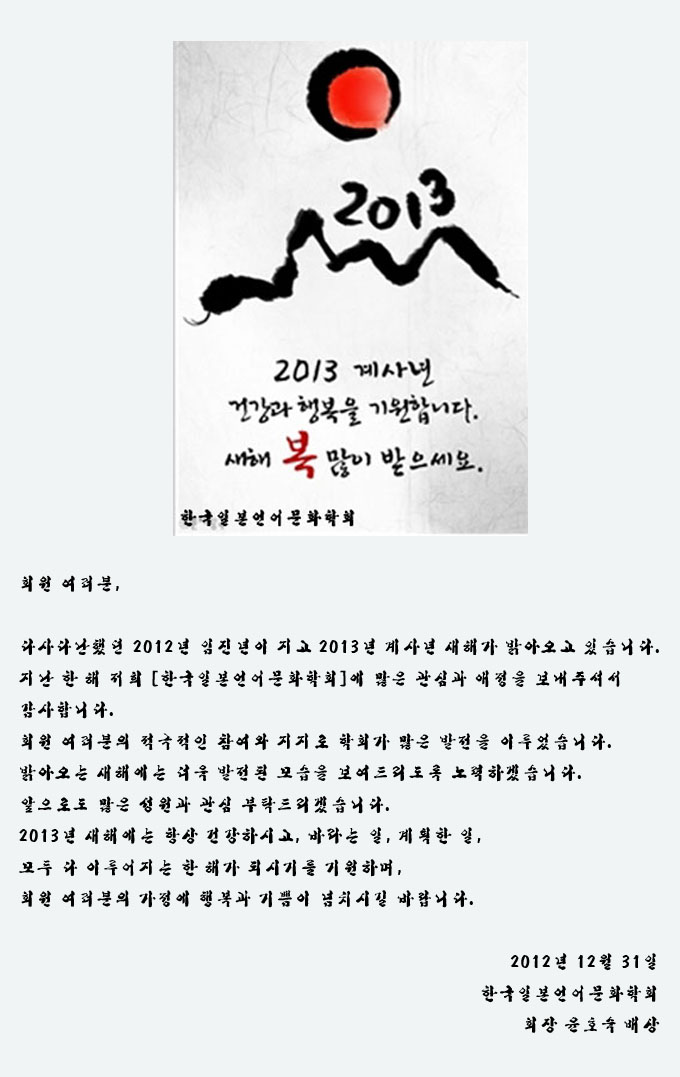 2013
2013 계사년
건강과 행복을 기원합니다.
새해 복 많이 받으세요.
한국일본언어문화학회
회원 여러분,
다사다난했던 2012년 임진년이 지고 2013년 계사년 새해가 밝아오고 있습니다.
지난 한 해 저희 [한국일본언어문화학회]에 많은 관심과 애정을 보내주셔서
감사합니다.
회원 여러분의 적극적인 참여와 지지로 학회가 많은 발전을 이루었습니다.
밝아오는 새해에는 더욱 발전된 모습을 보여드리도록 노력하겠습니다.
앞으로도 많은 성원과 관심 부탁드리겠습니다.
2013년 새해에는 항상 건강하시고, 바라는 일, 계획한 일,
모두 다 이루어지는 한 해가 되시기를 기원하며,
회원 여러분의 가정에 행복과 기쁨이 넘치시길 바랍니다.
2012년 12월 31일
한국일본언어문화학회
회장 윤호숙 배상